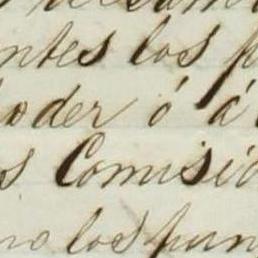 ntes los p
poder ó á
s Comisió
no los pun